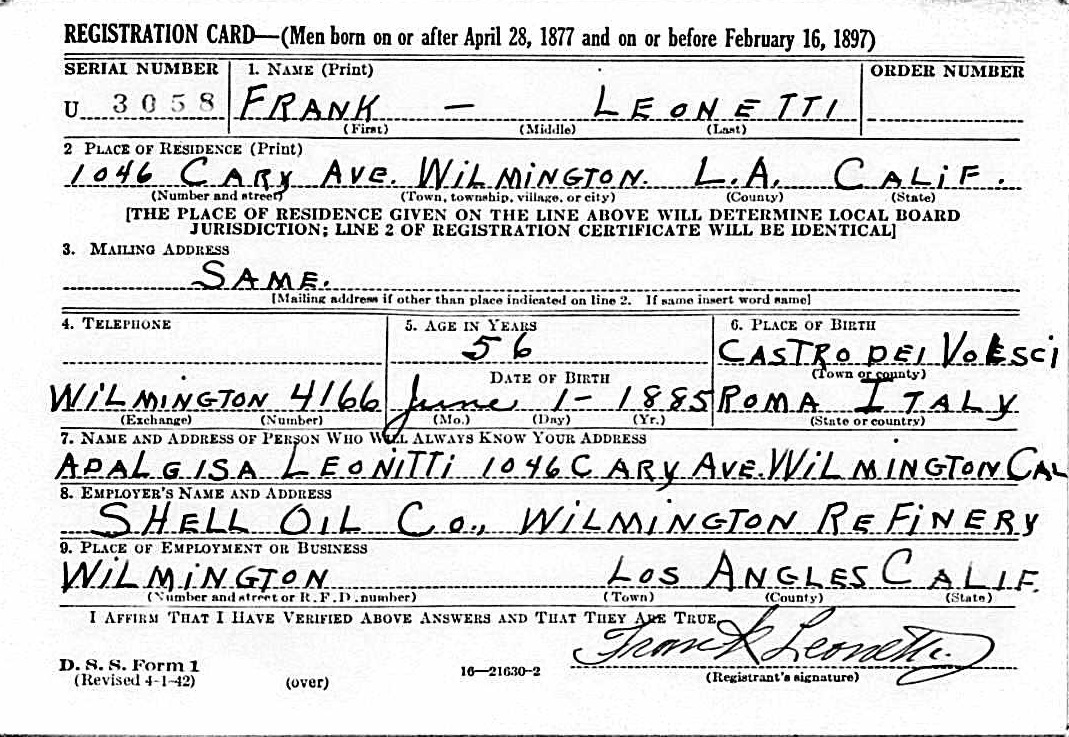 REGISTRATION CARD—(Men born on or after April 28, 1877 and on or before February 16, 1897)
SERIAL NUMBER 1. NAME (Print) ORDER NUMBER
U 3058 FRANK — LEONETTI
(First) (Middle) (Last)
2 PLACE OF RESIDENCE (Print)
1046 CARY AVE. WILMINGTON. L.A. CALIF.
(Number and street) (Town, township, village, or city) (County) (State)
[THE PLACE OF RESIDENCE GIVEN ON THE LINE ABOVE WILL DETERMINE LOCAL BOARD
JURISDICTION; LINE 2 OF REGISTRATION CERTIFICATE WILL BE IDENTICAL]
3. MAILING ADDRESS
SAME.
[Mailing address if other than place indicated on line 2. If same insert word same]
4. TELEPHONE 5. AGE IN YEARS 6. PLACE OF BIRTH
56 CASTRO DEI VOLSCI
DATE OF BIRTH (Town or county)
WILMINGTON 4166 June 1- 1885 ROMA ITALY
(Exchange) (Number) (Mo.) (Day) (Yr.) (State or country)
7. NAME AND ADDRESS OF PERSON WHO WILL ALWAYS KNOW YOUR ADDRESS
ADALGISA LEONITTI 1046 CARY AVE. WILMINGTON CAL
8. EMPLOYER'S NAME AND ADDRESS
SHELL OIL CO., WILMINGTON REFINERY
9. PLACE OF EMPLOYMENT OR BUSINESS
WILMINGTON LOS ANGLES CALIF.
(Number and street or R. F. D. number) (Town) (County) (State)
I AFFIRM THAT I HAVE VERIFIED ABOVE ANSWERS AND THAT THEY ARE TRUE.
Frank Leonetti
D. S. S. Form 1
(Revised 4-1-42) (over) 16—21630-2 (Registrant's signature)